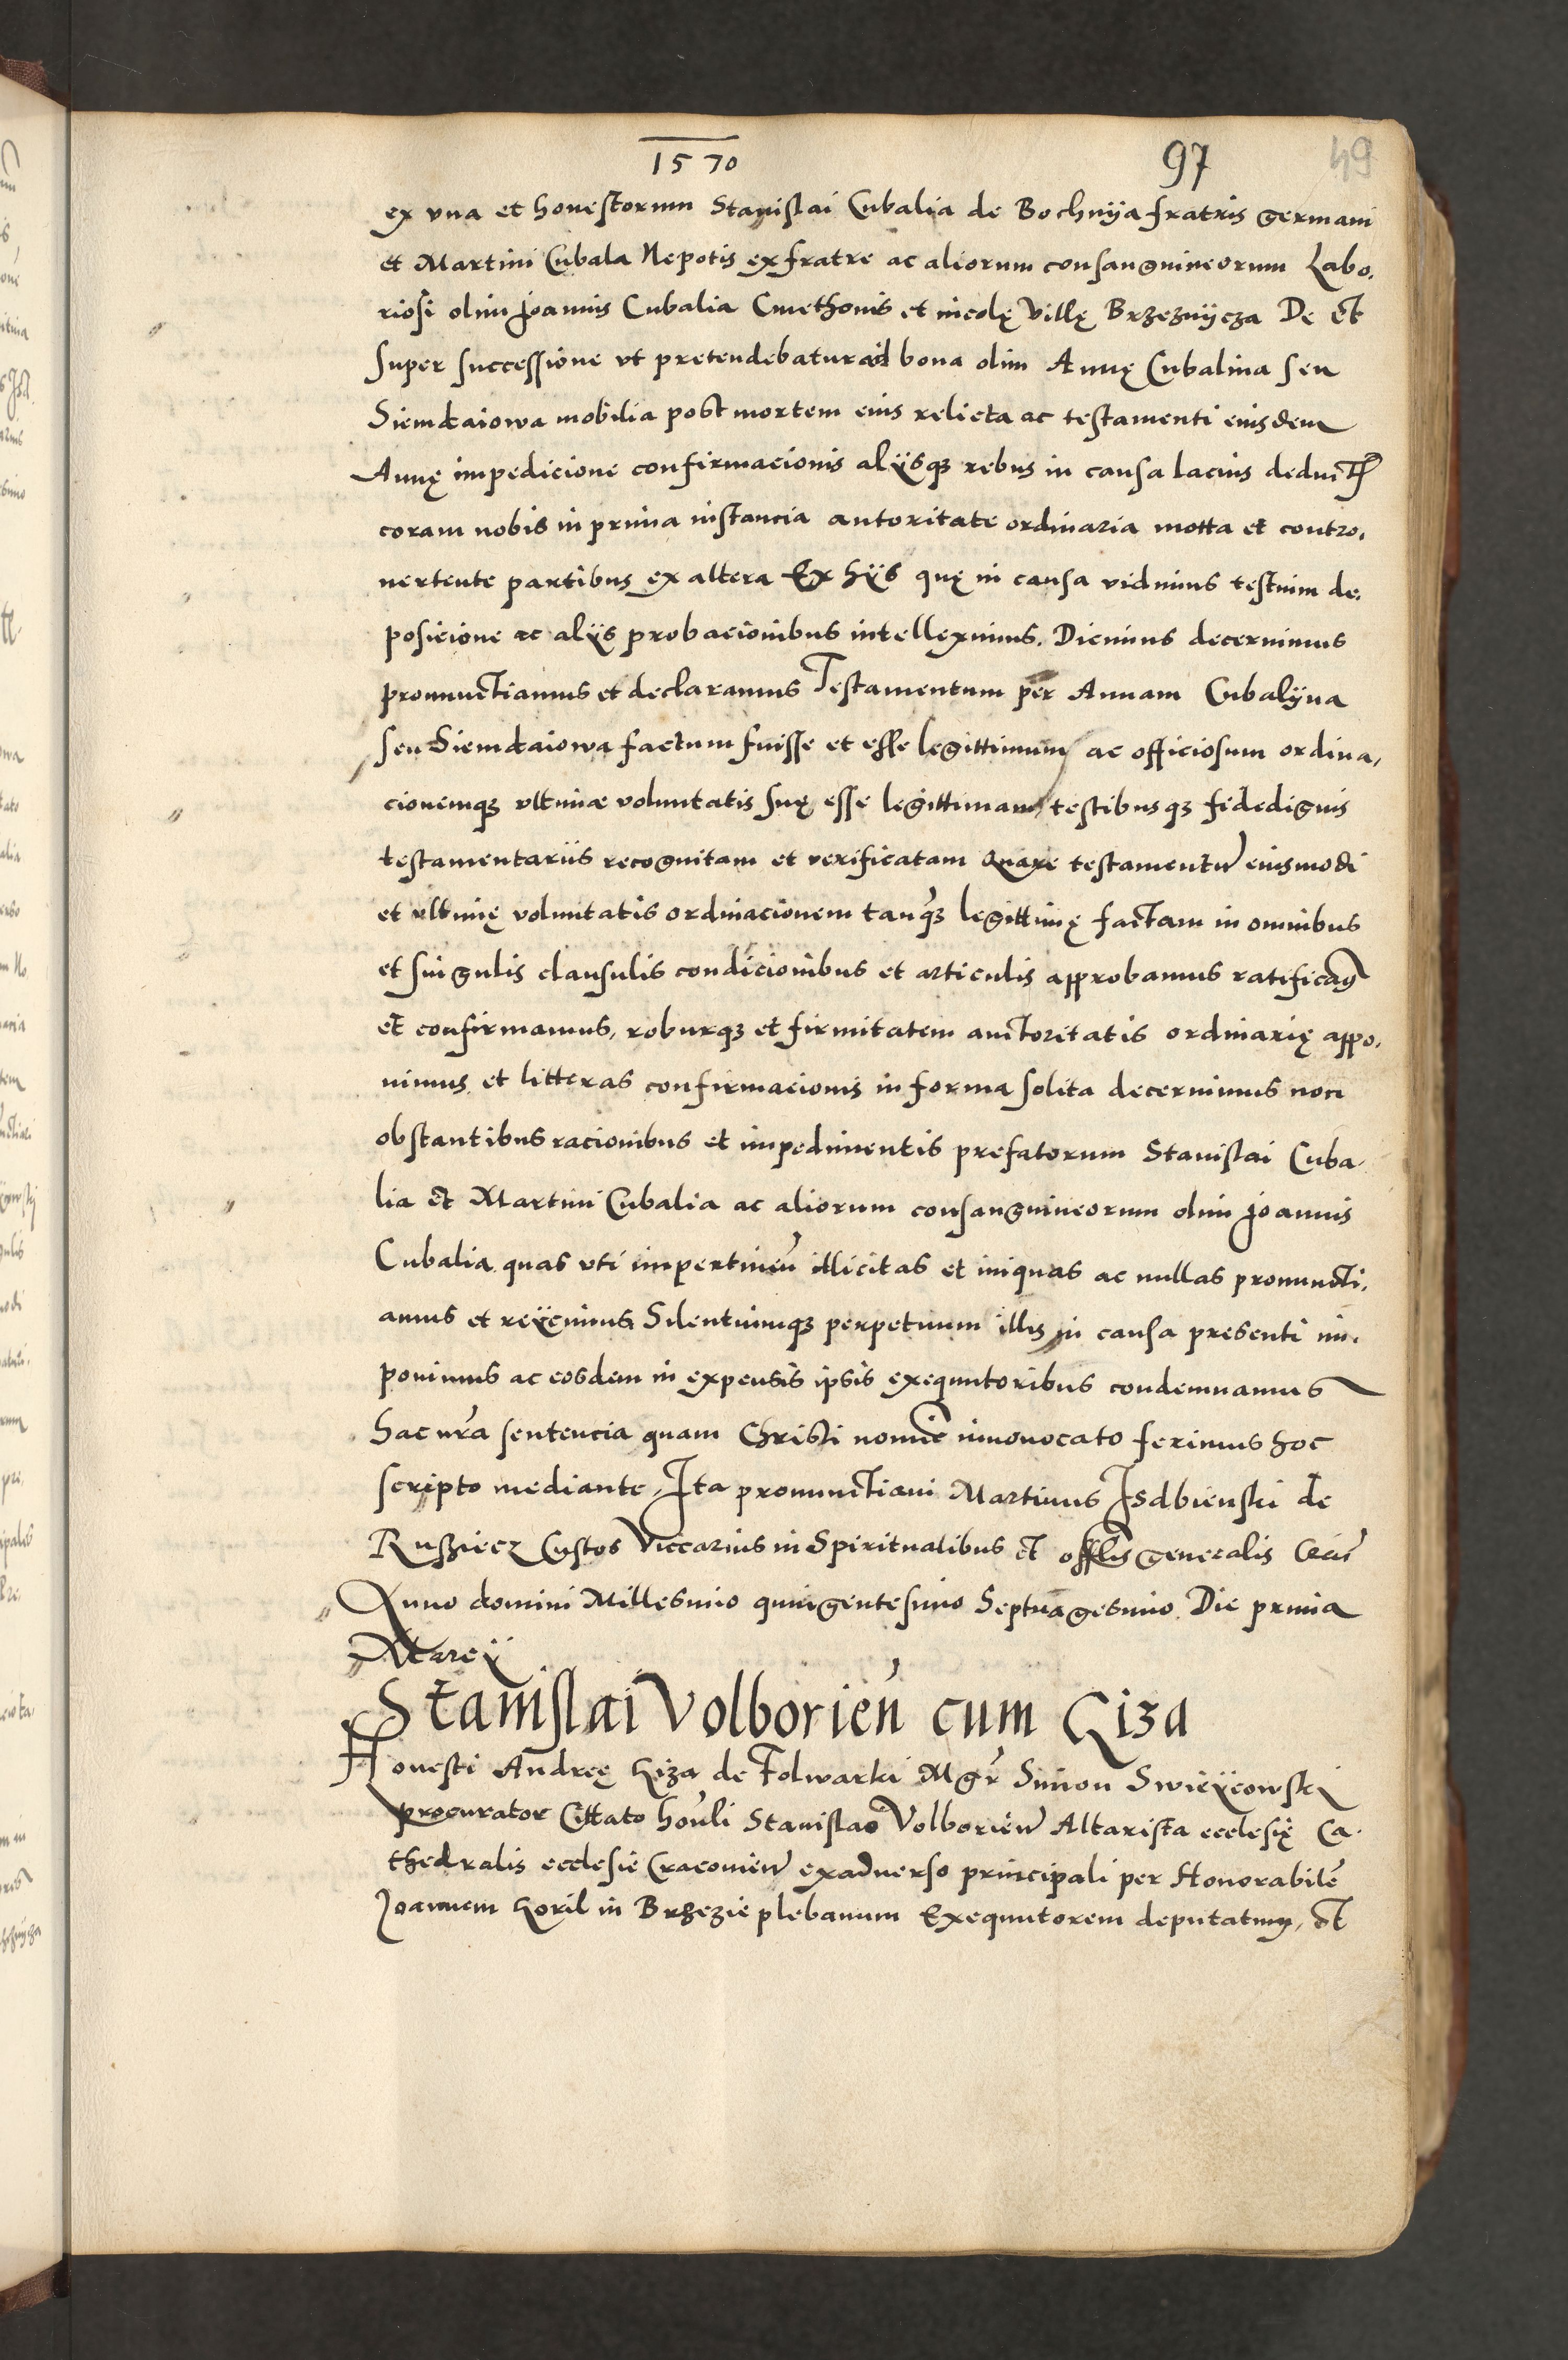 1570
97
49
ex vna et honestorum Stanislai Cubalia de Bochnÿa fratris germani
et Martini Cubala Nepotis ex fratre ac aliorum consanguineorum Labo,
riosi olim Joannis Cubalia Cmethonis et incolę Villę Brzeznÿcza De et
super successione vt pretendebatur ad bona olim Annę Cubalina seu
Siemkaiowa mobilia post mortem eius relicta ac testamenti eiusdem
Annę impedicione confirmacionis alÿsq3 rebus in causa lacius deduct
coram nobis in prima instancia autoritate ordinaria motta et contro,
uertente partibus ex altera Ex hÿs quę in causa vidimus testium de,
posicione ac alÿs probacionibus intelleximus. Dicimus decernimus
pronunctiamus et declaramus Testamentum per Annam Cubalÿna
seu Siemkaiowa factum fuisse et esse legittimum ac officiosum ordina,
cionemq3 vltimæ voluntatis suę esse legittimam testibusq3 fidedignis
testamentariis recognitam et verificatam Quare testamentu eiusmodi
et vltimę voluntatis ordinacionem tanq3 legittimę factam in omnibus
et singulis clausulis condicionibus et articulis approbamus ratificam9
et confirmamus, roburq3 et firmitatem auctoritatis ordinarię appo,
nimus et litteras confirmacionis in forma solita decernimus non
obstantibus racionibus et impedimentis prefatorum Stanislai Cuba,
lia et Martini Cubalia ac aliorum consanguineorum olim Joannis
Cubalia quas vti impertinen illicitas et iniquas ac nullas pronuncti,
amus et reÿcimus Silentiumq3 perpetuum illis in causa presenti im,
ponimus ac eosdem in expensis ipsis exequutoribus condemnamus
hac nra sentencia quam Christi nomie innouocato ferimus hoc
scripto mediante, Ita pronunctiaui Martinus Isdbienski de
Rusziecz Custos Viccarius in Spiritualibus et offlis generalis Crac
Anno domini Millesimo quingentesimo Septuagesimo Die prima
Marcÿ
Stanislai Volborien cum Giza
Honesti Andreę Giza de Folwarki Mgr Simon Swieÿcowski
procurator Cittato honli Stanislao Volborien Altarista ecclesię Ca,
thedralis ecclesie Cracouien exaduerso principali per Honorabile
Joannem Koril in Brzezie plebanum Exequutorem deputatum, et